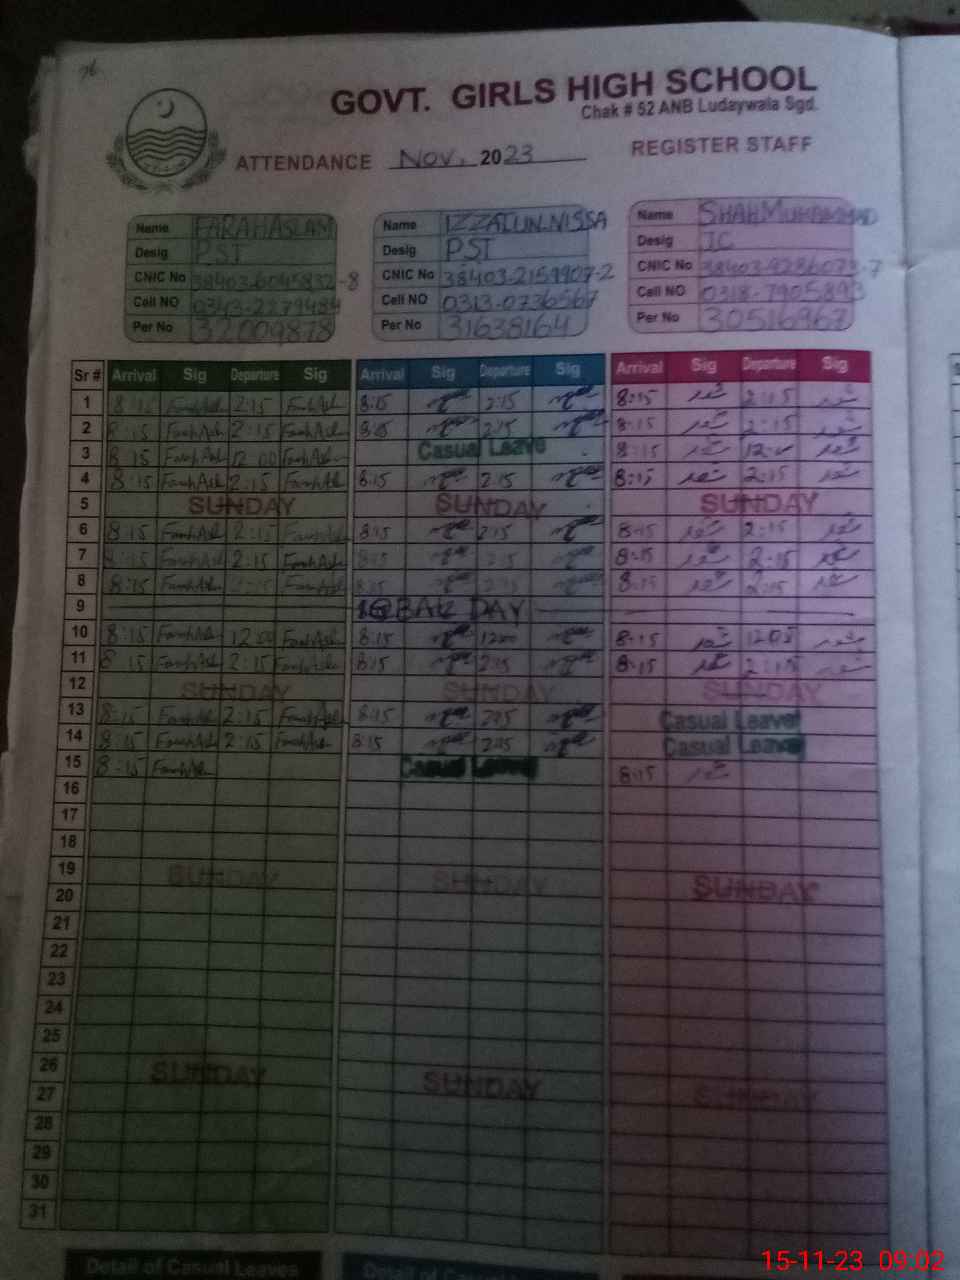 GOVT. GIRLS HIGH SCHOOL
Chak # 52 ANB Ludaywala Sgd.
ATTENDANCE Nov, 2023 REGISTER STAFF
Name FARAH ASLAM Name IZZATUN-NISSA Name SHAH MUHAMMAD
Desig PST Desig PST Desig
CNIC No 38403-6045832-8 CNIC No 38403-2159907-2 CNIC No 38403-9286073-7
Cell NO 0343-2279484 Cell NO 0313-0736567 Cell NO 0318-7905893
Per No 32009878 Per No 31638164 Per No 30516967
Sr # Arrival Sig Departure Sig Arrival Sig Departure Sig Arrival Sig Departure Sig
1 8:15 FarahAsl 2:15 FarahAsl 8:15 2:15 8:15 2:15
2 8:15 FarahAsl 2:15 FarahAsl 8:15 2:15 8:15 2:15
3 8:15 FarahAsl 12:00 FarahAsl Casual Leave 8:15
4 8:15 FarahAsl 2:15 FarahAsl 8:15 2:15 8:15 2:15
5 SUNDAY SUNDAY SUNDAY
6 8:15 FarahAsl 2:15 FarahAsl 8:15 2:15 8:15 2:15
7 8:15 FarahAsl 2:15 FarahAsl 8:15 2:15 8:15 2:15
8 8:15 FarahAsl FarahAsl 8:15 2:15 8:15 2:15
9 IQBAL DAY
10 8:15 FarahAsl 12:00 FarahAsl 8:15 1200 8:15
11 8:15 FarahAsl 2:15 FarahAsl 8:15 2:15 8:15 2:15
12 SUNDAY SUNDAY SUNDAY
13 8:15 FarahAsl 2:15 FarahAsl 8:15 2:15 Casual Leave
14 8:15 FarahAsl 2:15 FarahAsl 8:15 2:15 Casual Leave
15 8:15 FarahAsl Casual Leave 8:15
16
17
18
19 SUNDAY SUNDAY SUNDAY
20
21
22
23
24
25
26 SUNDAY SUNDAY SUNDAY
27
28
29
30
31
Detail of Casual Leaves
15-11-23 09:02